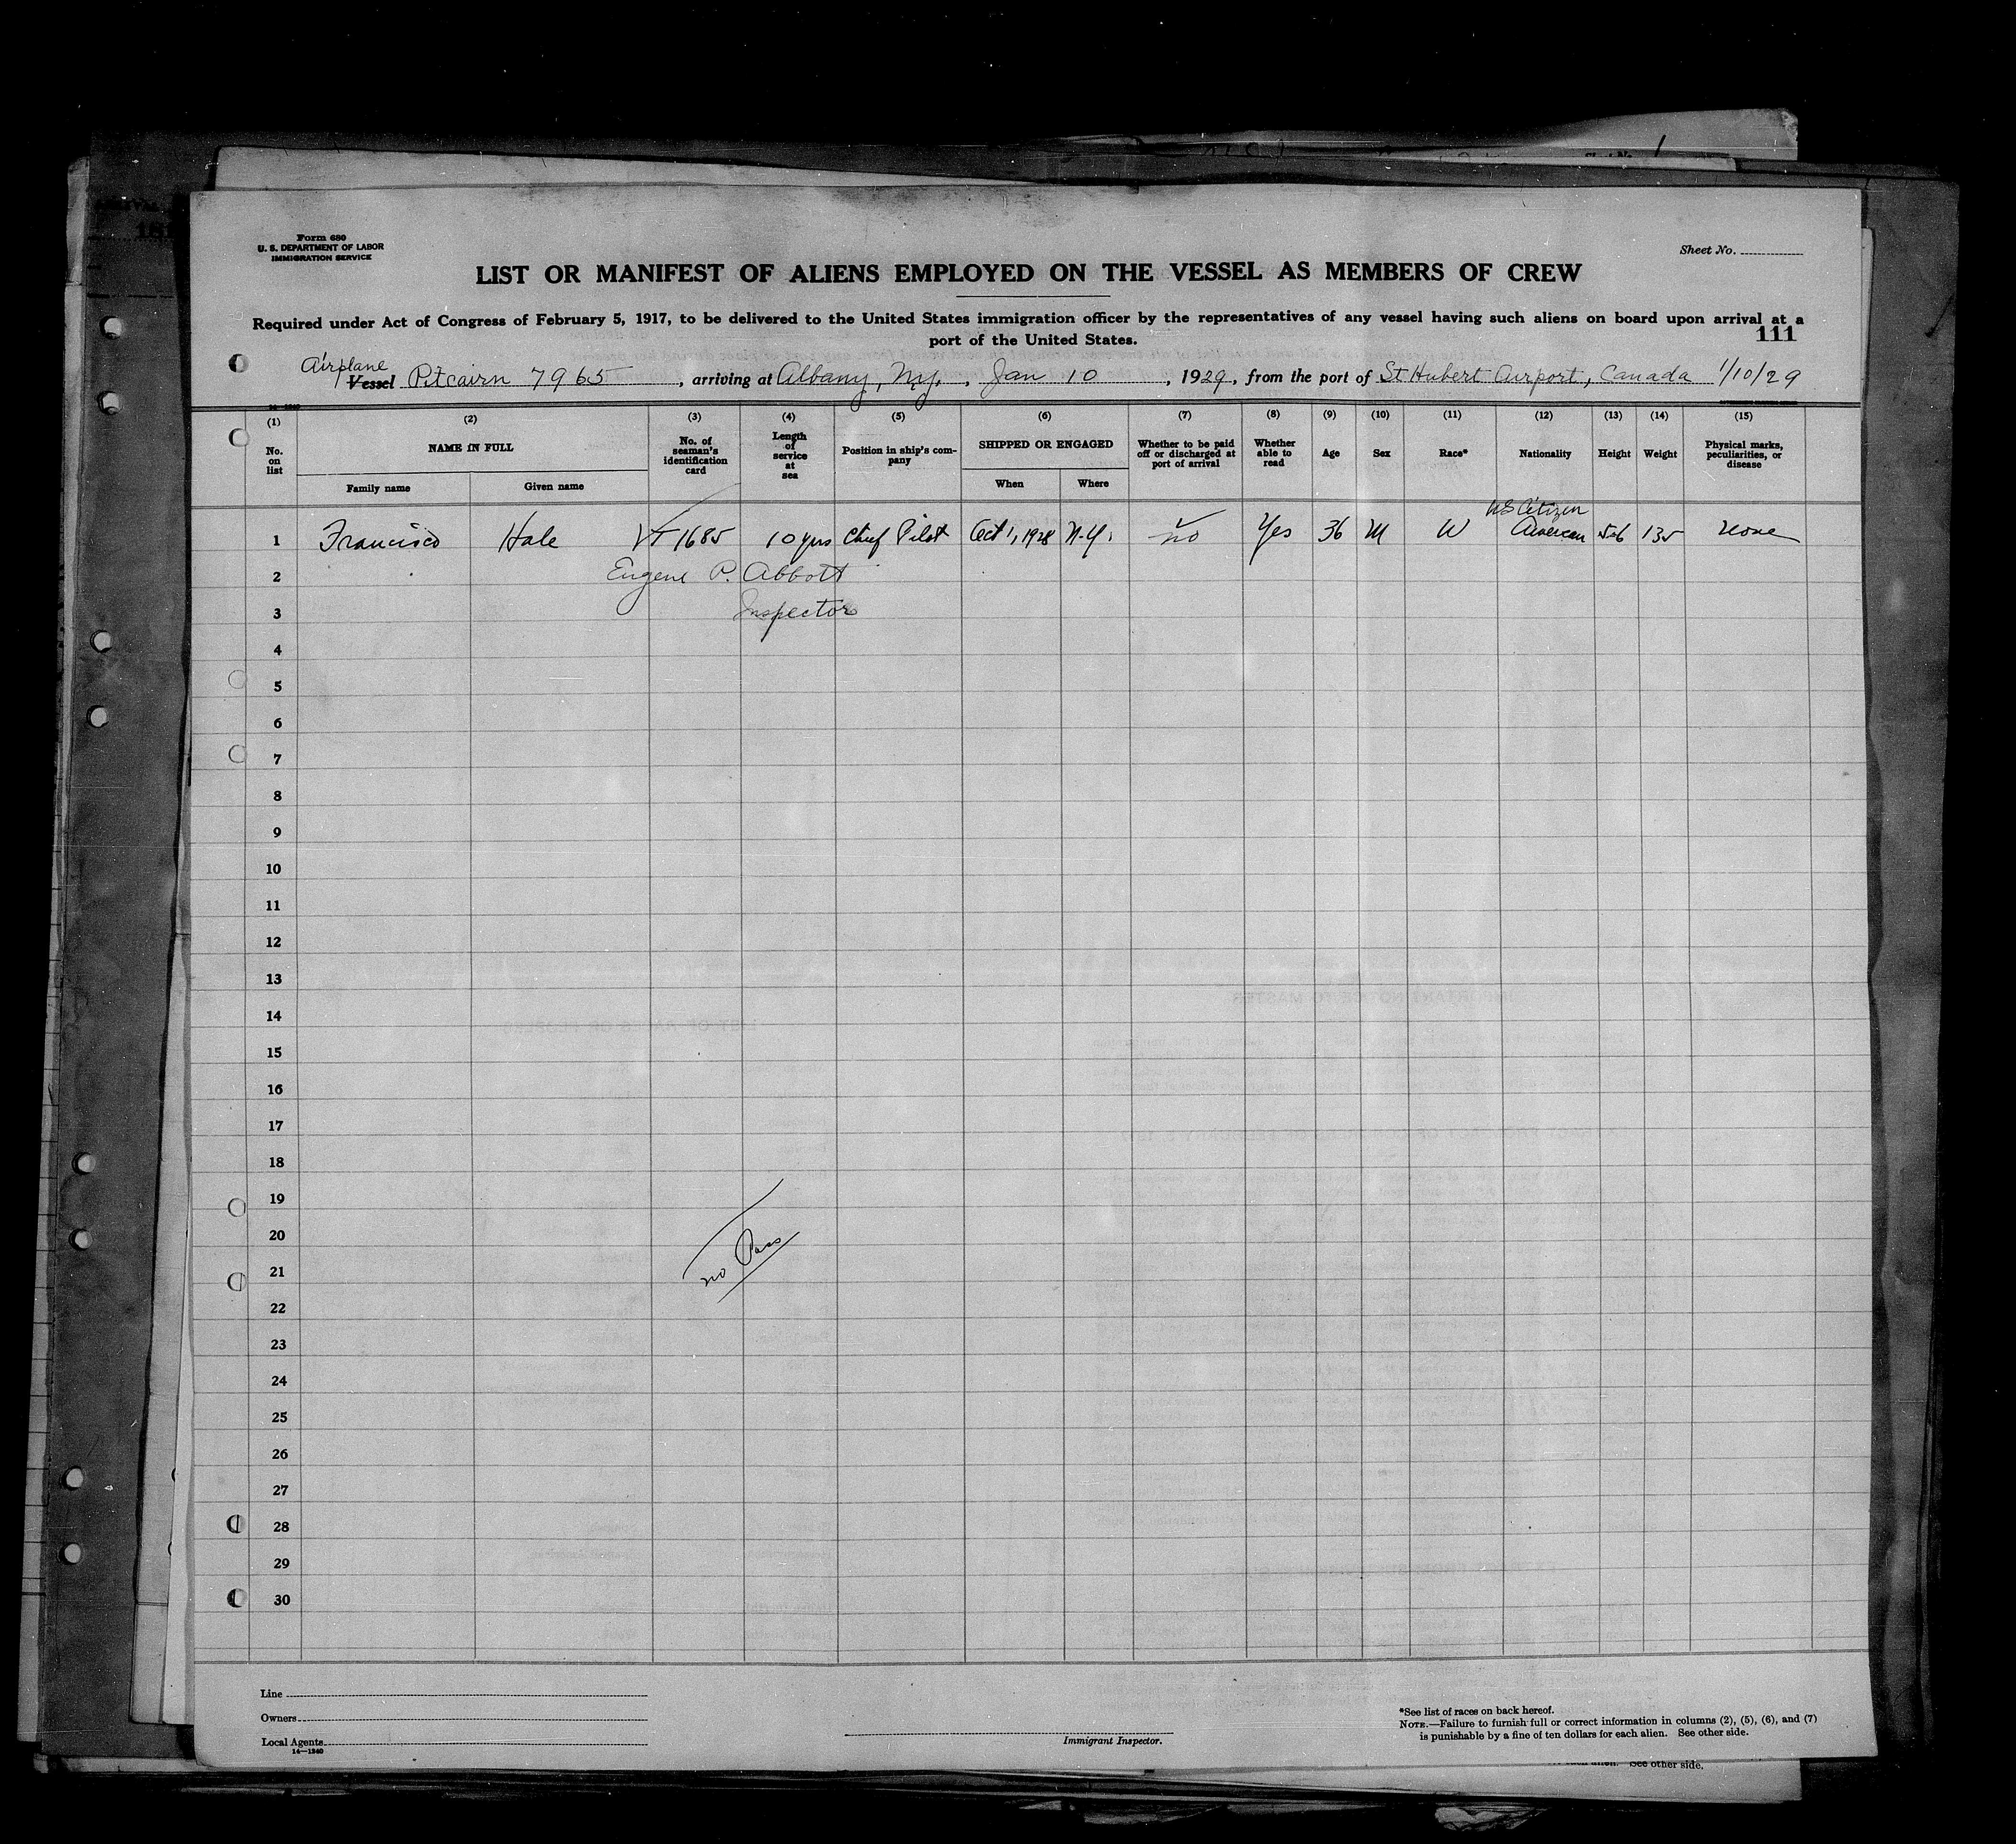 Form 680
U. S. DEPARTMENT OF LABOR
IMMIGRATION SERVICE
Sheet No.
LIST OR MANIFEST OF ALIENS EMPLOYED ON THE VESSEL AS MEMBERS OF CREW
Required under Act of Congress of February 5, 1917, to be delivered to the United States immigration officer by the representatives of any vessel having such aliens on board upon arrival at a
port of the United States.
111
Airplane
Vessel Pitcairn 7965, arriving at Albany, N.Y., Jan 10, 1929, from the port of St Hubert Airport, Canada 1/10/29
(1) (2) (3) (4) (5) (6) (7) (8) (9) (10) (11) (12) (13) (14) (15)
No. on list
NAME IN FULL
Family name
Given name
No. of seaman's identification card
Length of service at sea
Position in ship's company
SHIPPED OR ENGAGED
When
Where
Whether to be paid off or discharged at port of arrival
Whether able to read
Age
Sex
Race*
Nationality
Height
Weight
Physical marks, peculiarities, or disease
US Citizen
1 Francisco Hale VT 1685 10 yrs Chief Pilot Oct 1, 1928 N.Y. no Yes 36 M W American 5-6 135 none
2 Eugene P. Abbott
3 Inspector
4
5
6
7
8
9
10
11
12
13
14
15
16
17
18
19
20
no Pass
21
22
23
24
25
26
27
28
29
30
Line
Owners
Local Agents
14—1240
Immigrant Inspector.
*See list of races on back hereof.
NOTE.—Failure to furnish full or correct information in columns (2), (5), (6), and (7)
is punishable by a fine of ten dollars for each alien. See other side.
See other side.